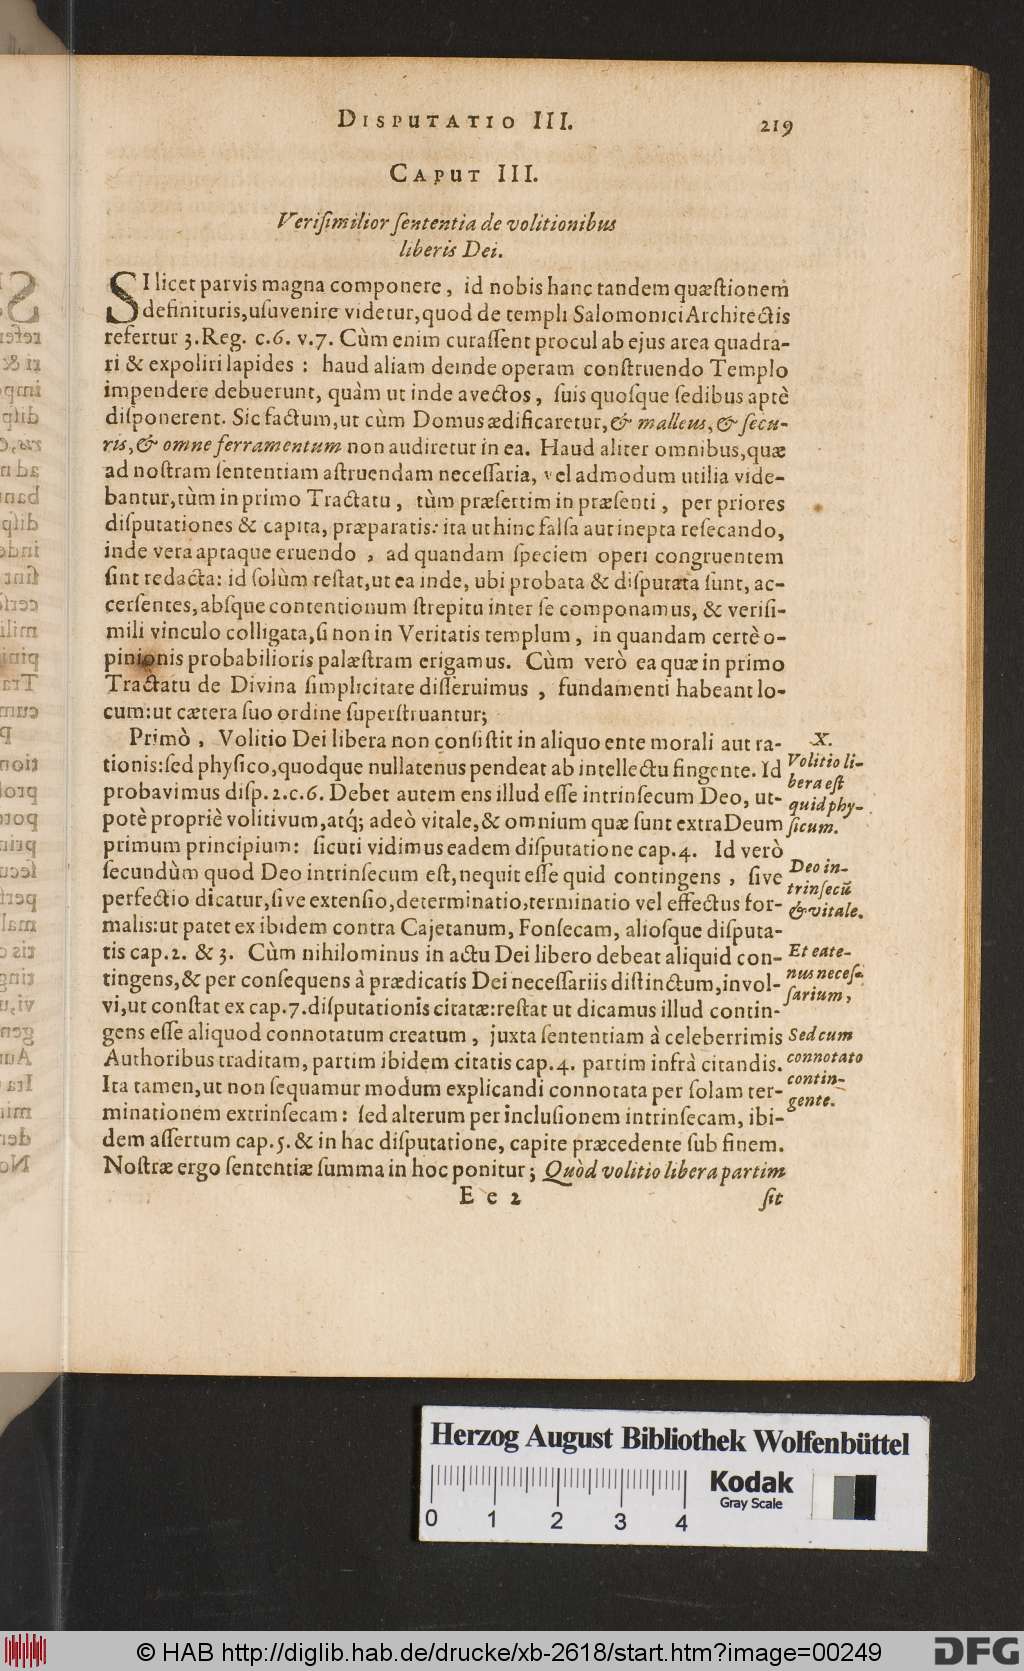 DISPUTATIO III. 219
CAPUT III.
Verisimilior sententia de volitionibus
liberis Dei.
SI licet parvis magna componere, id nobis hanc tandem quæstionem
definituris, usuvenire videtur, quod de templi Salomonici Architectis
refertur 3. Reg. c. 6. v. 7. Cùm enim curassent procul ab ejus area quadra-
ri & expoliri lapides: haud aliam deinde operam construendo Templo
impendere debuerunt, quàm ut inde avectos, suis quosque sedibus aptè
disponerent. Sic factum, ut cùm Domus ædificaretur, & malleus, & secu-
ris, & omne ferramentum non audiretur in ea. Haud aliter omnibus, quæ
ad nostram sententiam astruendam necessaria, vel admodum utilia vide-
bantur, tùm in primo Tractatu, tùm præsertim in præsenti, per priores
disputationes & capita, præparatis: ita ut hinc falsa aut inepta resecando,
inde vera aptaque eruendo, ad quandam speciem operi congruentem
sint redacta: id solùm restat, ut ea inde, ubi probata & disputata sunt, ac-
cersentes, absque contentionum strepitu inter se componamus, & verisi-
mili vinculo colligata, si non in Veritatis templum, in quandam certè o-
pinionis probabilioris palæstram erigamus. Cùm verò ea quæ in primo
Tractatu de Divina simplicitate disseruimus, fundamenti habeant lo-
cum: ut cætera suo ordine superstruantur;
Primò, Volitio Dei libera non consistit in aliquo ente morali aut ra-
tionis: sed physico, quodque nullatenus pendeat ab intellectu fingente. Id
probavimus disp. 2. c. 6. Debet autem ens illud esse intrinsecum Deo, ut-
potè propriè volitivum, atq́; adeò vitale, & omnium quæ sunt extra Deum
primum principium: sicuti vidimus eadem disputatione cap. 4. Id verò
secundùm quod Deo intrinsecum est, nequit esse quid contingens, sive
perfectio dicatur, sive extensio, determinatio, terminatio vel effectus for-
malis: ut patet ex ibidem contra Cajetanum, Fonsecam, aliosque disputa-
tis cap. 2. & 3. Cùm nihilominus in actu Dei libero debeat aliquid con-
tingens, & per consequens à prædicatis Dei necessariis distinctum, invol-
vi, ut constat ex cap. 7. disputationis citatæ: restat ut dicamus illud contin-
gens esse aliquod connotatum creatum, juxta sententiam à celeberrimis
Authoribus traditam, partim ibidem citatis cap. 4. partim infrà citandis.
Ita tamen, ut non sequamur modum explicandi connotata per solam ter-
minationem extrinsecam: sed alterum per inclusionem intrinsecam, ibi-
dem assertum cap. 5. & in hac disputatione, capite præcedente sub finem.
Nostræ ergo sententiæ summa in hoc ponitur; Quòd volitio libera partim
Ee 2 sit
X.
Volitio li-
bera est
quid phy-
sicum.
Deo in-
trinsecū
& vitale.
Et eate-
nus neces-
sarium,
Sed cum
connotato
contin-
gente.
Herzog August Bibliothek Wolfenbüttel
Kodak
Gray Scale
0 1 2 3 4
© HAB http://diglib.hab.de/drucke/xb-2618/start.htm?image=00249
DFG